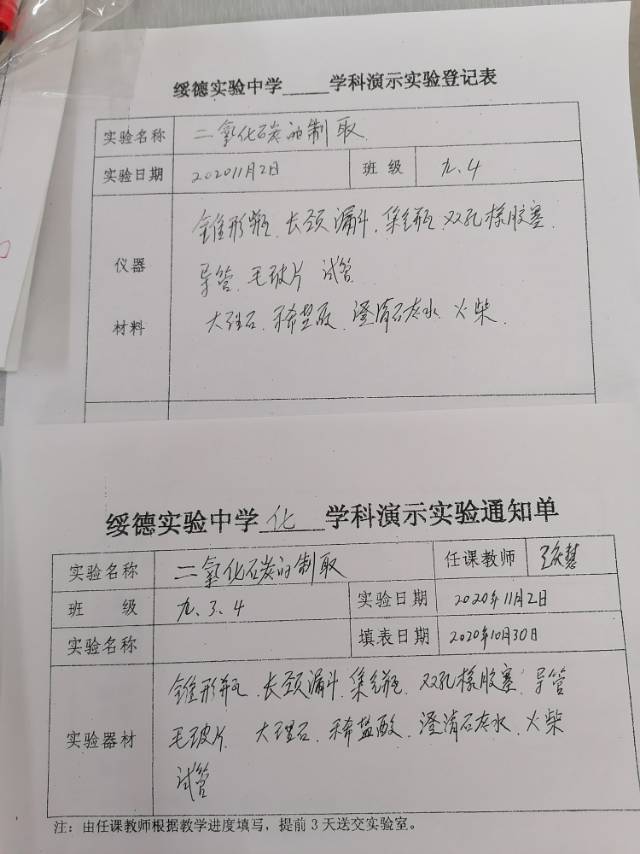 绥德实验中学_____学科演示实验登记表
实验名称 二氧化碳的制取
实验日期 202011月2日 班级 九、4
锥形瓶、长颈漏斗、集气瓶、双孔橡胶塞、
仪器 导管、毛玻片 试管
材料 大理石、稀盐酸、澄清石灰水、火柴、
绥德实验中学 化 学科演示实验通知单
实验名称 二氧化碳的制取 任课教师
班 级 九、3、4 实验日期 2020年11月2日
实验名称 填表日期 2020年10月30日
锥形瓶、长颈漏斗、集气瓶、双孔橡胶塞、导管
实验器材 毛玻片、大理石、稀盐酸、澄清石灰水、火柴
试管
注：由任课教师根据教学进度填写，提前3天送交实验室。